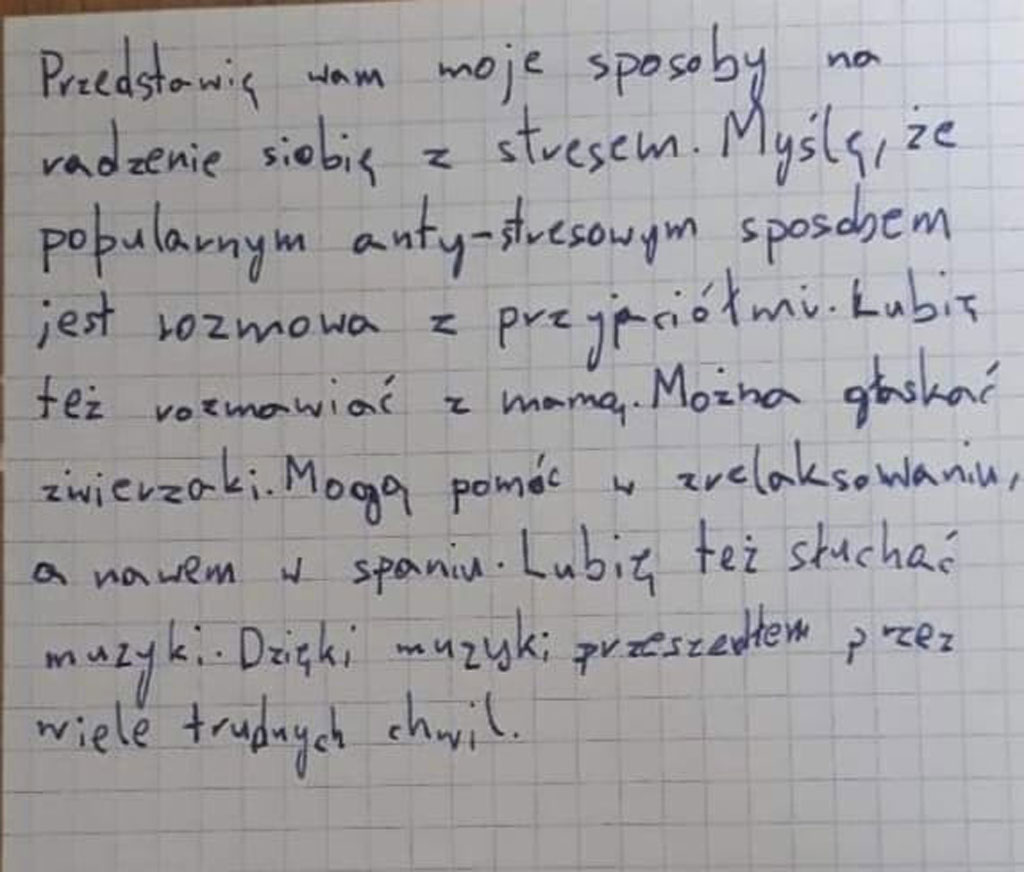 Przedstawię wam moje sposoby na
radzenie siobię z stresem. Myślę, że
popularnym anty-stresowym sposobem
jest rozmowa z przyjaciółmi. Lubię
też rozmawiać z mamą. Można głaskać
zwierzaki. Mogą pomóc w zrelaksowaniu,
a nawem w spaniu. Lubię też słuchać
muzyki. Dzięki muzyki przeszedłem przez
wiele trudnych chwil.